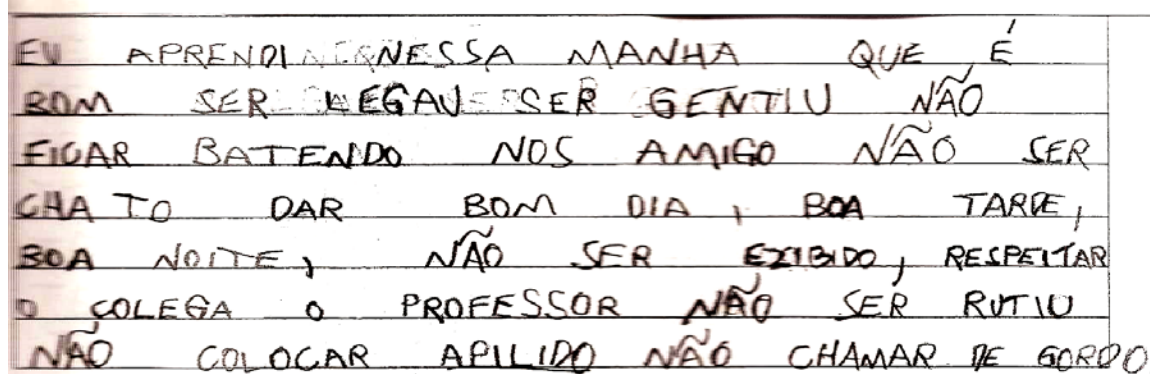 EU APRENDI NESSA MANHA QUE É
BOM SER LEGAU SER GENTIU NÃO
FICAR BATENDO NOS AMIGO NÃO SER
CHATO DAR BOM DIA, BOA TARDE,
BOA NOITE, NÃO SER EZIBIDO, RESPEITAR
O COLEGA O PROFESSOR NÃO SER RUTIU
NÃO COLOCAR APILIDO NÃO CHAMAR DE GORDO